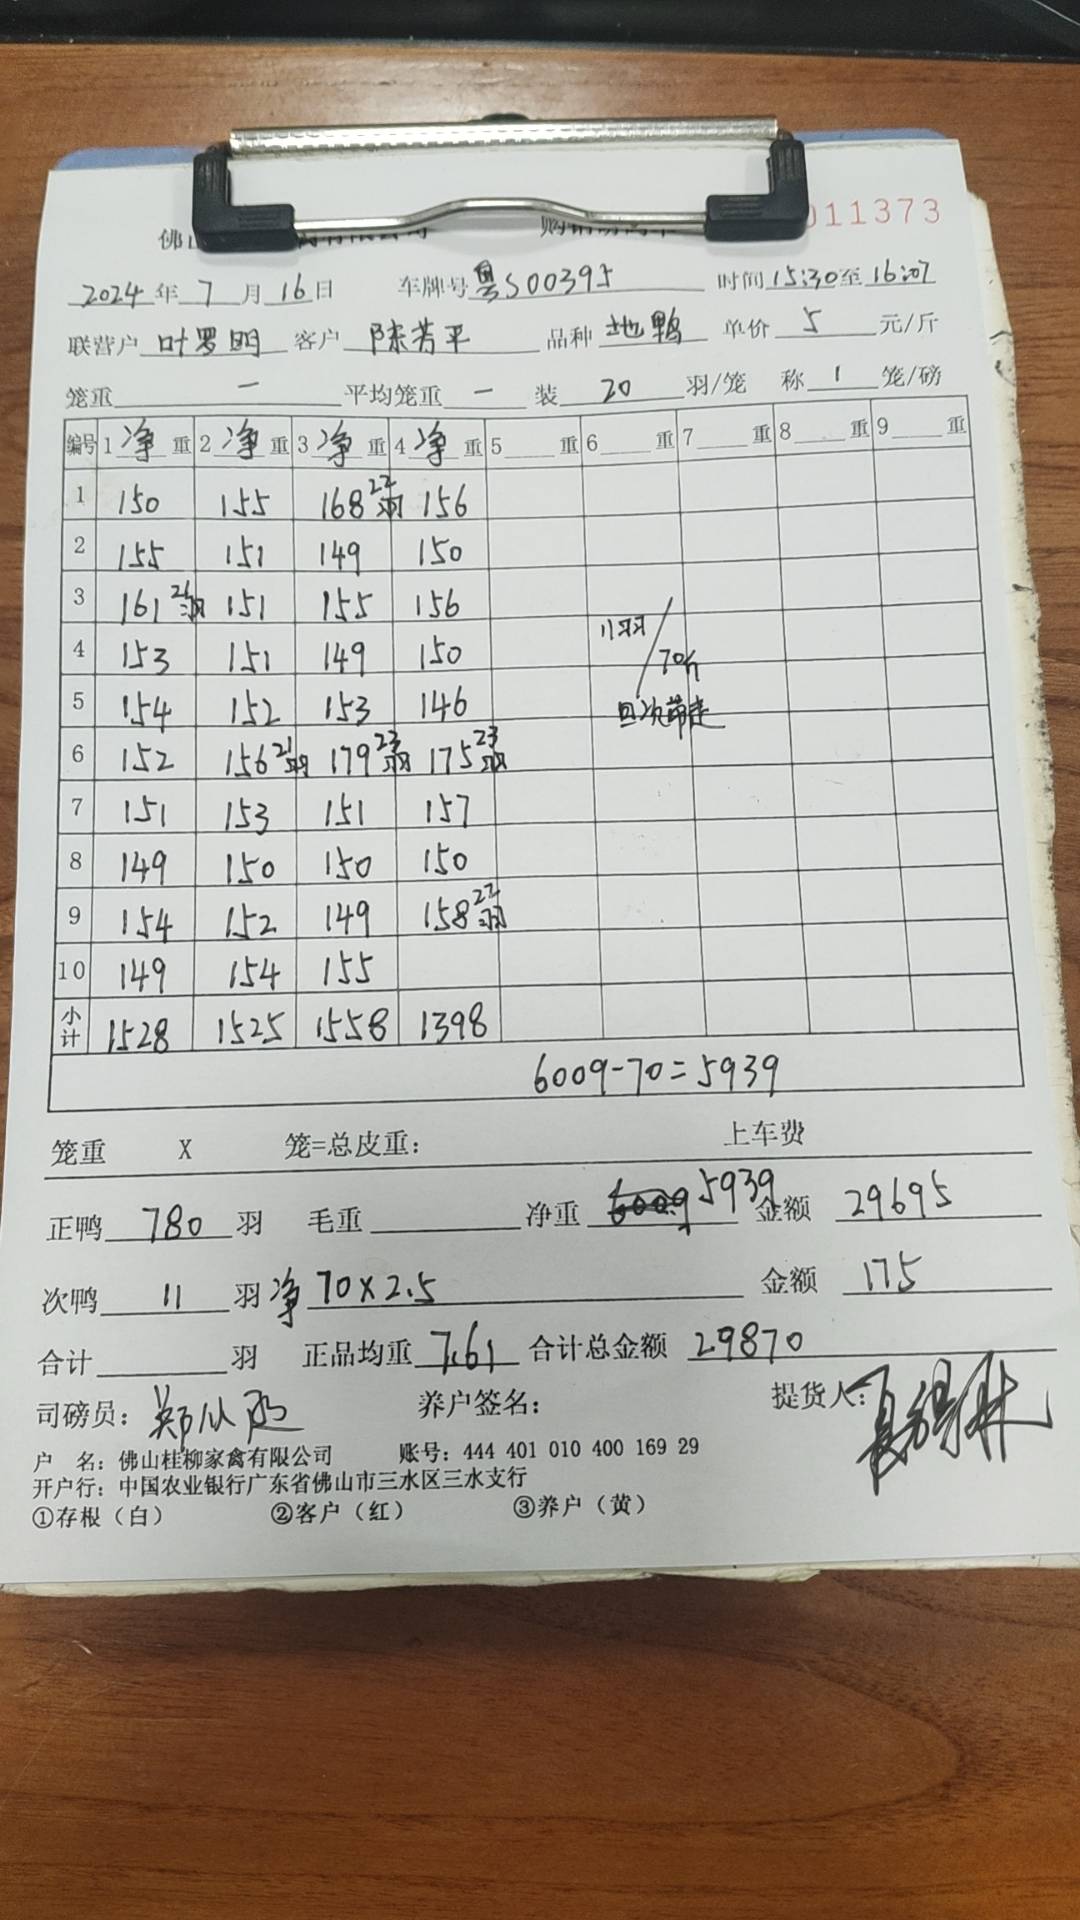 佛山
011373
2024年7月16日 车牌号粤S00395 时间15:30至16:07
联营户叶罗明 客户陈芳平 品种地鸭 单价5元/斤
笼重一 平均笼重一 装20羽/笼 称1笼/磅
编号 1净重 2净重 3净重 4净重 5重 6重 7重 8重 9重
1 150 155 168 22羽 156
2 155 151 149 150
3 161 21羽 151 155 156
4 153 151 149 150
5 154 152 153 146
6 152 156 21羽 179 23羽 175 23羽
7 151 153 151 157
8 149 150 150 150
9 154 152 149 158 22羽
10 149 154 155
11羽/70斤
小计 1528 1525 1558 1398
6009-70=5939
笼重 X 笼=总皮重: 上车费
正鸭780羽 毛重 净重 6009 5939 金额 29695
次鸭11羽 净70×2.5 金额 175
合计 羽 正品均重7.61 合计总金额 29870
司磅员: 养户签名: 提货人:
户 名: 佛山桂柳家禽有限公司 账号: 444 401 010 400 169 29
开户行: 中国农业银行广东省佛山市三水区三水支行
①存根（白） ②客户（红） ③养户（黄）